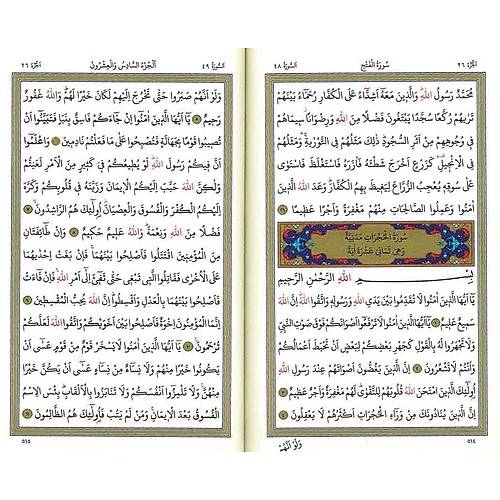 الجزء ٢٦ سُورَةُ الْفَتْحِ السورة ٤٨
مُحَمَّدٌ رَسُولُ اللّٰهِ وَالَّذِينَ مَعَهُ أَشِدَّاءُ عَلَى الْكُفَّارِ رُحَمَاءُ بَيْنَهُمْ
تَرٰيهُمْ رُكَّعًا سُجَّدًا يَبْتَغُونَ فَضْلًا مِنَ اللّٰهِ وَرِضْوَانًا سِيمَاهُمْ
فِي وُجُوهِهِمْ مِنْ أَثَرِ السُّجُودِ ذٰلِكَ مَثَلُهُمْ فِي التَّوْرٰيةِ وَمَثَلُهُمْ
فِي الْإِنْجِيلِ كَزَرْعٍ أَخْرَجَ شَطْأَهُ فَآزَرَهُ فَاسْتَغْلَظَ فَاسْتَوٰى
عَلٰى سُوقِهِ يُعْجِبُ الزُّرَّاعَ لِيَغِيظَ بِهِمُ الْكُفَّارَ وَعَدَ اللّٰهُ الَّذِينَ
اٰمَنُوا وَعَمِلُوا الصَّالِحَاتِ مِنْهُمْ مَغْفِرَةً وَأَجْرًا عَظِيمًا ٢٩
سُورَةُ الْحُجُرَاتِ مَدَنِيَّةٌ
وَهِيَ ثَمَانِي عَشْرَةَ اٰيَةً
بِسْمِ اللّٰهِ الرَّحْمٰنِ الرَّحِيمِ
يَا أَيُّهَا الَّذِينَ اٰمَنُوا لَا تُقَدِّمُوا بَيْنَ يَدَيِ اللّٰهِ وَرَسُولِهِ وَاتَّقُوا اللّٰهَ إِنَّ اللّٰهَ
سَمِيعٌ عَلِيمٌ ١ يَا أَيُّهَا الَّذِينَ اٰمَنُوا لَا تَرْفَعُوا أَصْوَاتَكُمْ فَوْقَ صَوْتِ النَّبِيِّ
وَلَا تَجْهَرُوا لَهُ بِالْقَوْلِ كَجَهْرِ بَعْضِكُمْ لِبَعْضٍ أَنْ تَحْبَطَ أَعْمَالُكُمْ
وَأَنْتُمْ لَا تَشْعُرُونَ ٢ إِنَّ الَّذِينَ يَغُضُّونَ أَصْوَاتَهُمْ عِنْدَ رَسُولِ اللّٰهِ
أُولٰئِكَ الَّذِينَ امْتَحَنَ اللّٰهُ قُلُوبَهُمْ لِلتَّقْوٰى لَهُمْ مَغْفِرَةٌ وَأَجْرٌ عَظِيمٌ ٣
إِنَّ الَّذِينَ يُنَادُونَكَ مِنْ وَرَاءِ الْحُجُرَاتِ أَكْثَرُهُمْ لَا يَعْقِلُونَ ٤
٥١٤
وَلَوْ أَنَّهُمْ
السورة ٤٩ اَلْجُزْءُ السَّادِسُ وَالْعِشْرُونَ الجزء ٢٦
وَلَوْ أَنَّهُمْ صَبَرُوا حَتّٰى تَخْرُجَ إِلَيْهِمْ لَكَانَ خَيْرًا لَهُمْ وَاللّٰهُ غَفُورٌ
رَحِيمٌ ٥ يَا أَيُّهَا الَّذِينَ اٰمَنُوا إِنْ جَاءَكُمْ فَاسِقٌ بِنَبَأٍ فَتَبَيَّنُوا أَنْ
تُصِيبُوا قَوْمًا بِجَهَالَةٍ فَتُصْبِحُوا عَلٰى مَا فَعَلْتُمْ نَادِمِينَ ٦ وَاعْلَمُوا
أَنَّ فِيكُمْ رَسُولَ اللّٰهِ لَوْ يُطِيعُكُمْ فِي كَثِيرٍ مِنَ الْأَمْرِ لَعَنِتُّمْ
وَلٰكِنَّ اللّٰهَ حَبَّبَ إِلَيْكُمُ الْإِيمَانَ وَزَيَّنَهُ فِي قُلُوبِكُمْ وَكَرَّهَ
إِلَيْكُمُ الْكُفْرَ وَالْفُسُوقَ وَالْعِصْيَانَ أُولٰئِكَ هُمُ الرَّاشِدُونَ ٧
فَضْلًا مِنَ اللّٰهِ وَنِعْمَةً وَاللّٰهُ عَلِيمٌ حَكِيمٌ ٨ وَإِنْ طَائِفَتَانِ
مِنَ الْمُؤْمِنِينَ اقْتَتَلُوا فَأَصْلِحُوا بَيْنَهُمَا فَإِنْ بَغَتْ إِحْدٰيهُمَا
عَلَى الْأُخْرٰى فَقَاتِلُوا الَّتِي تَبْغِي حَتّٰى تَفِيءَ إِلٰى أَمْرِ اللّٰهِ فَإِنْ فَاءَتْ
فَأَصْلِحُوا بَيْنَهُمَا بِالْعَدْلِ وَأَقْسِطُوا إِنَّ اللّٰهَ يُحِبُّ الْمُقْسِطِينَ ٩
إِنَّمَا الْمُؤْمِنُونَ إِخْوَةٌ فَأَصْلِحُوا بَيْنَ أَخَوَيْكُمْ وَاتَّقُوا اللّٰهَ لَعَلَّكُمْ
تُرْحَمُونَ ١٠ يَا أَيُّهَا الَّذِينَ اٰمَنُوا لَا يَسْخَرْ قَوْمٌ مِنْ قَوْمٍ عَسٰى أَنْ
يَكُونُوا خَيْرًا مِنْهُمْ وَلَا نِسَاءٌ مِنْ نِسَاءٍ عَسٰى أَنْ يَكُنَّ خَيْرًا
مِنْهُنَّ وَلَا تَلْمِزُوا أَنْفُسَكُمْ وَلَا تَنَابَزُوا بِالْأَلْقَابِ بِئْسَ الِاسْمُ
الْفُسُوقُ بَعْدَ الْإِيمَانِ وَمَنْ لَمْ يَتُبْ فَأُولٰئِكَ هُمُ الظَّالِمُونَ ١١
٥١٥